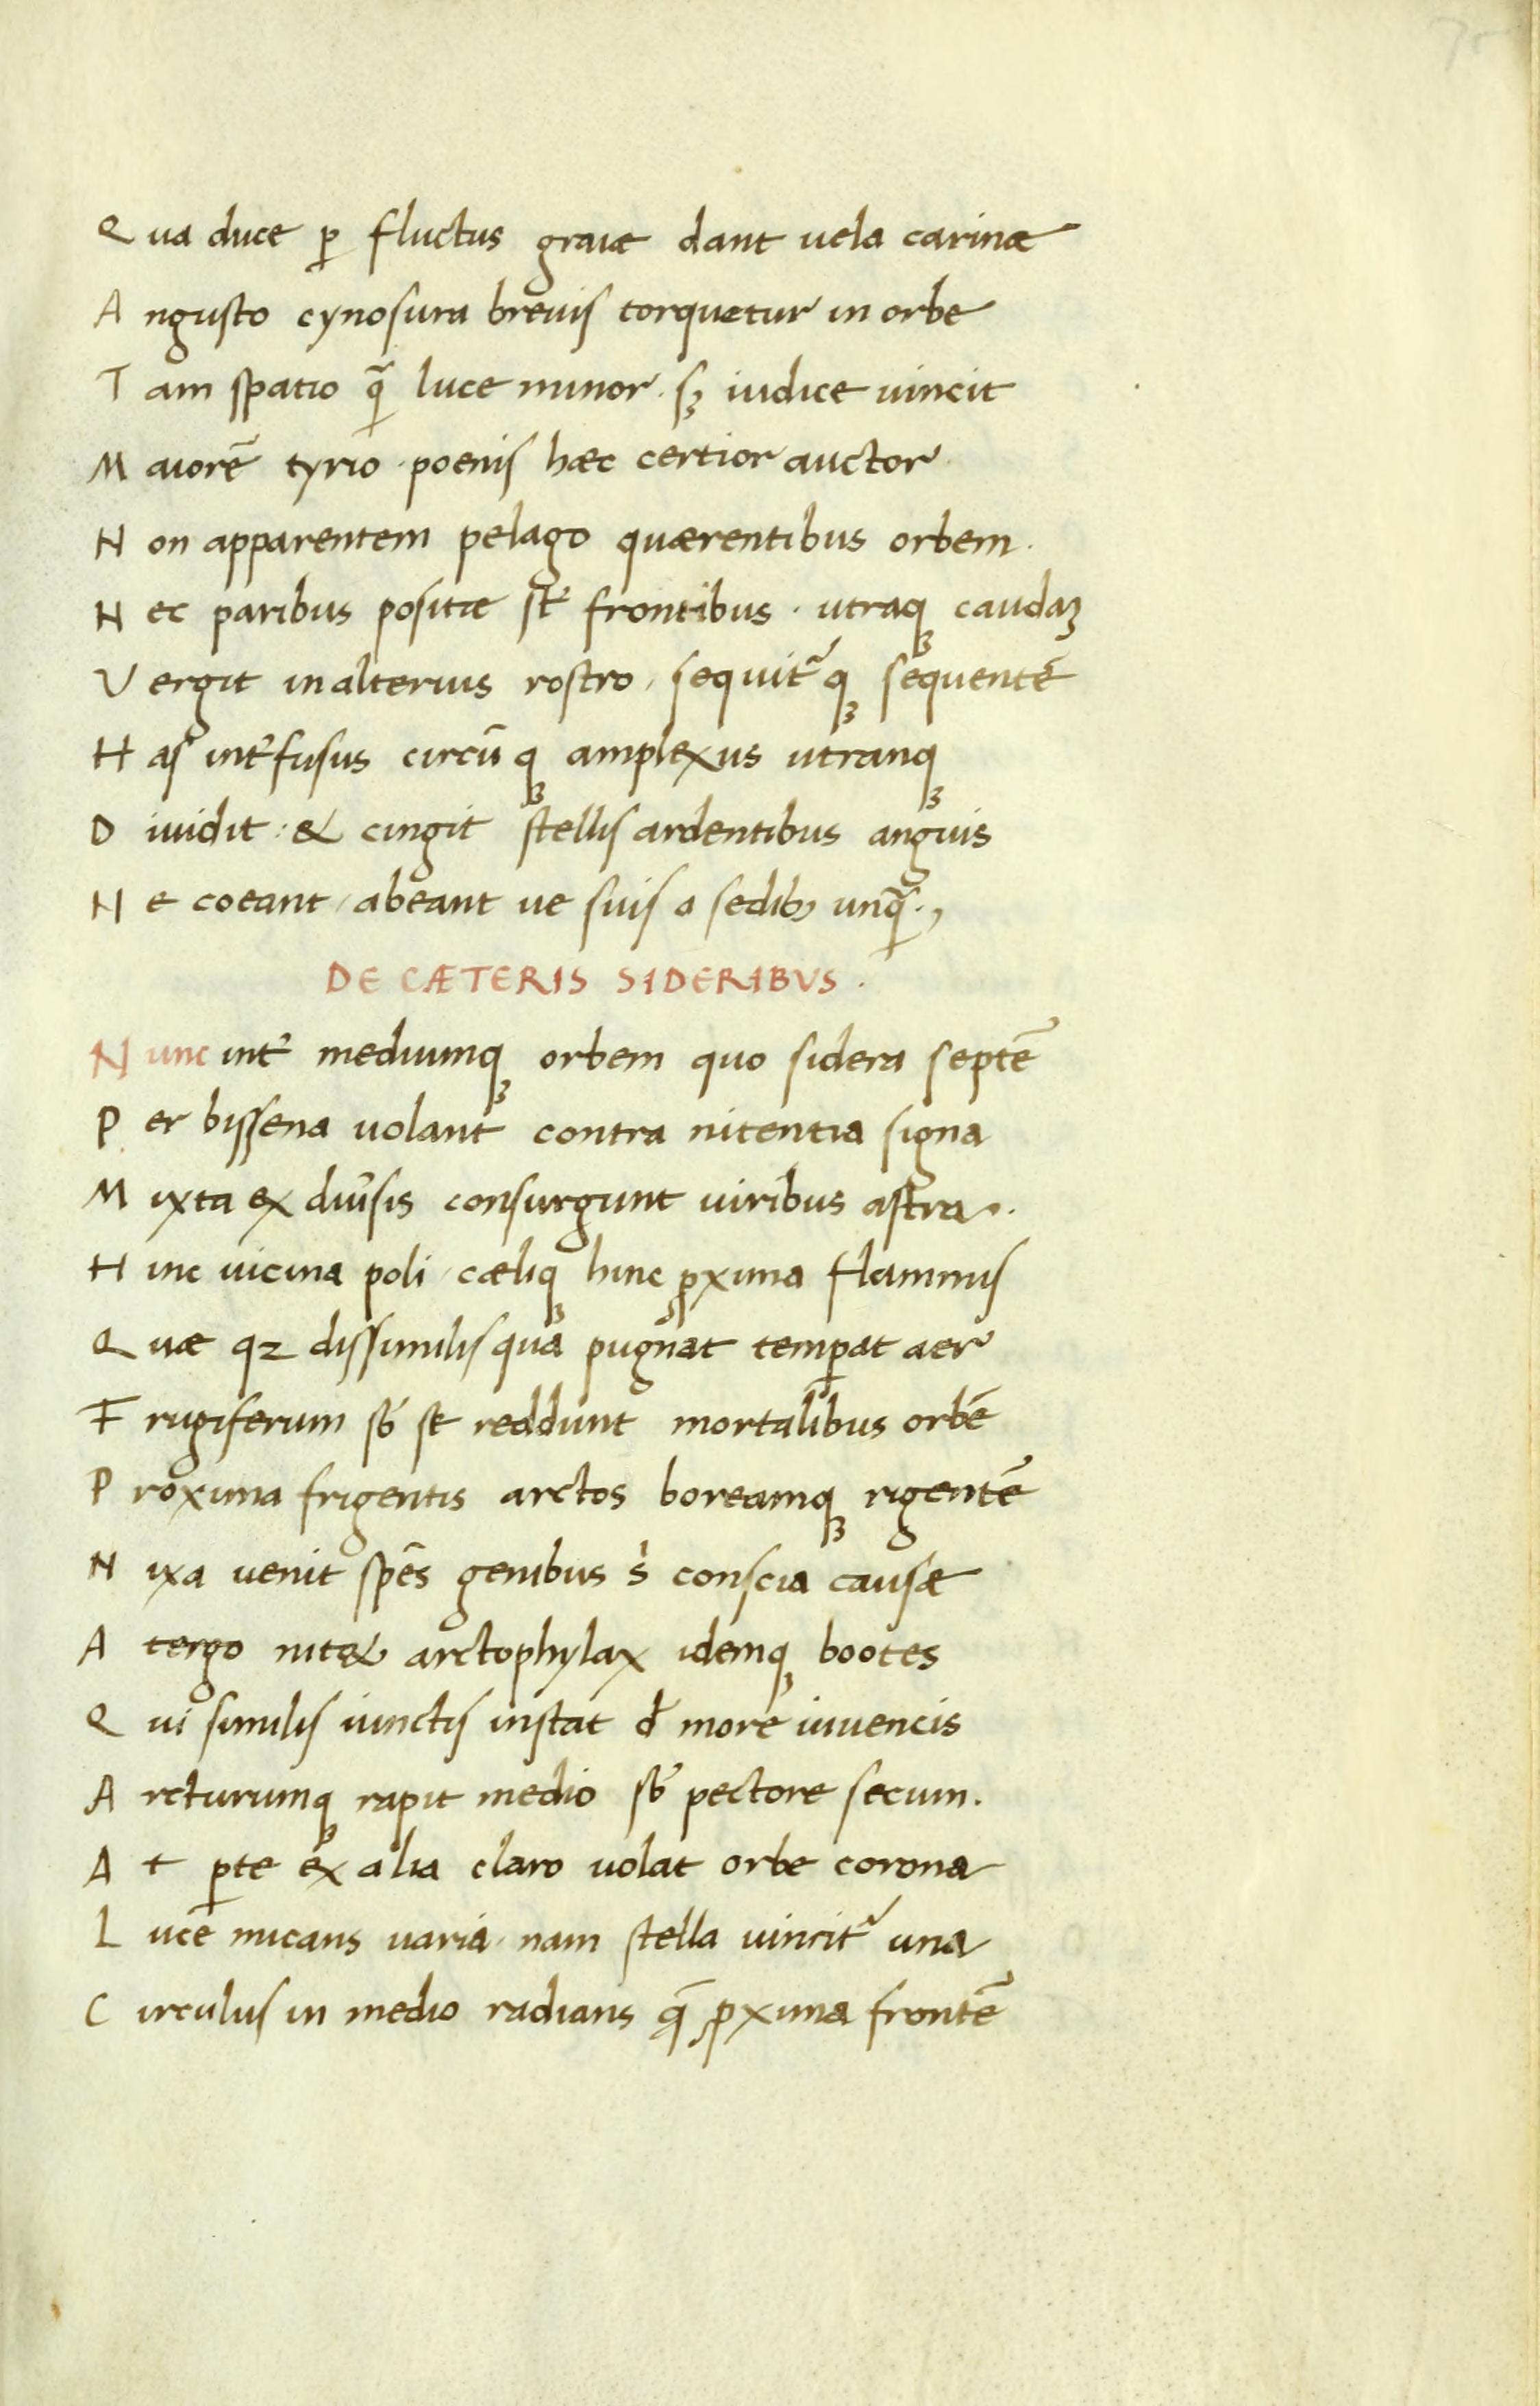 Qua duce ꝑ fluctus graiæ dant uela carinæ
Angusto cynosura breuis torquetur in orbe
Tam spatio ꝙ̃ luce minor. sꝫ iudice uincit
Maiorẽ tyrio. poenis hæc certior auctor.
Non apparentem pelago quærentibus orbem.
Nec paribus positæ st̃ frontibus. utraqꝫ caudaꝫ
Vergit in alterius rostro, sequit᷑qꝫ sequentẽ
Has int̾fusus circũqꝫ amplexus utranqꝫ
Diuidit: & cingit stellis ardentibus anguis
Ne coeant, abeant ue suis a sedibꝫ unꝙ̃.,
DE CÆTERIS SIDERIBVS.
Nunc int̾ mediumqꝫ orbem quo sidera septẽ
Per bissena uolant contra nitentia signa
Mixta ex diu̾sis consurgunt uiribus astra.
Hinc uicina poli, cæliqꝫ hinc ꝓxima flammis
Quæ qꝫ dissimilis qua pugnat temꝑat aer
Frugiferum sb̃ se reddunt mortalibus orbẽ
Proxima frigentis arctos boreamqꝫ rigentẽ
Nixa uenit spẽs genibus s̀ conscia causæ
A tergo nit& arctophylax idemqꝫ bootes
Qui similis iunctis instat đ more iuuencis
Arcturumqꝫ rapit medio sb̃ pectore secum.
At ꝑte ex alia claro uolat orbe corona
Luce micans uaria. nam stella uincit᷑ una
Circulus in medio radians q̃ ꝓxima frontẽ